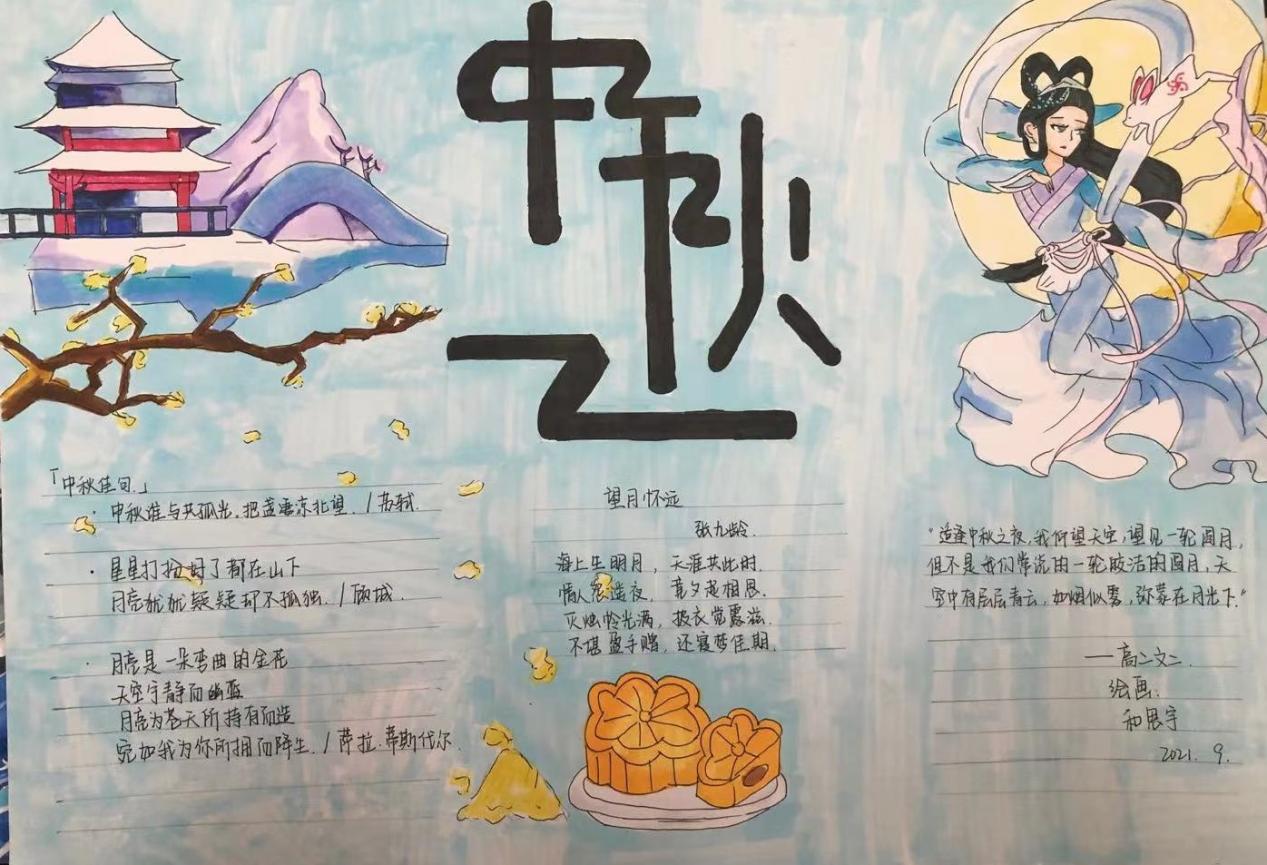 中秋
「中秋佳句.」
· 中秋谁与共孤光,把盏凄凉北望. /苏轼.
· 星星打扮好了都在山下
月亮犹犹疑疑却不孤独. /顾城.
· 月亮是一朵弯曲的金花
天空宁静而幽蓝
月亮为苍天所持有而造
宛如我为你所拥而降生. /萨拉.蒂斯代尔.
望月怀远
张九龄.
海上生明月, 天涯共此时.
情人怨遥夜, 竟夕起相思.
灭烛怜光满, 披衣觉露滋.
不堪盈手赠, 还寝梦佳期.
"适逢中秋之夜,我仰望天空,望见一轮圆月,
但不是我们常说的一轮皎洁的圆月,天
空中有层层青云,如烟似雾,弥蒙在月光下."
——高二文二.
绘画.
2021. 9.